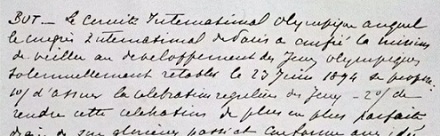 BUT — Le Comité International Olympique auquel
le congrès International de Paris a confié la mission
de veiller au développement des Jeux olympiques
solennellement rétablis le 23 Juin 1894 se propose
1o/ d'assurer la célébration régulière des Jeux — 2o/ de
rendre cette célébration de plus en plus parfaite
digne de son glorieux passé et conforme aux